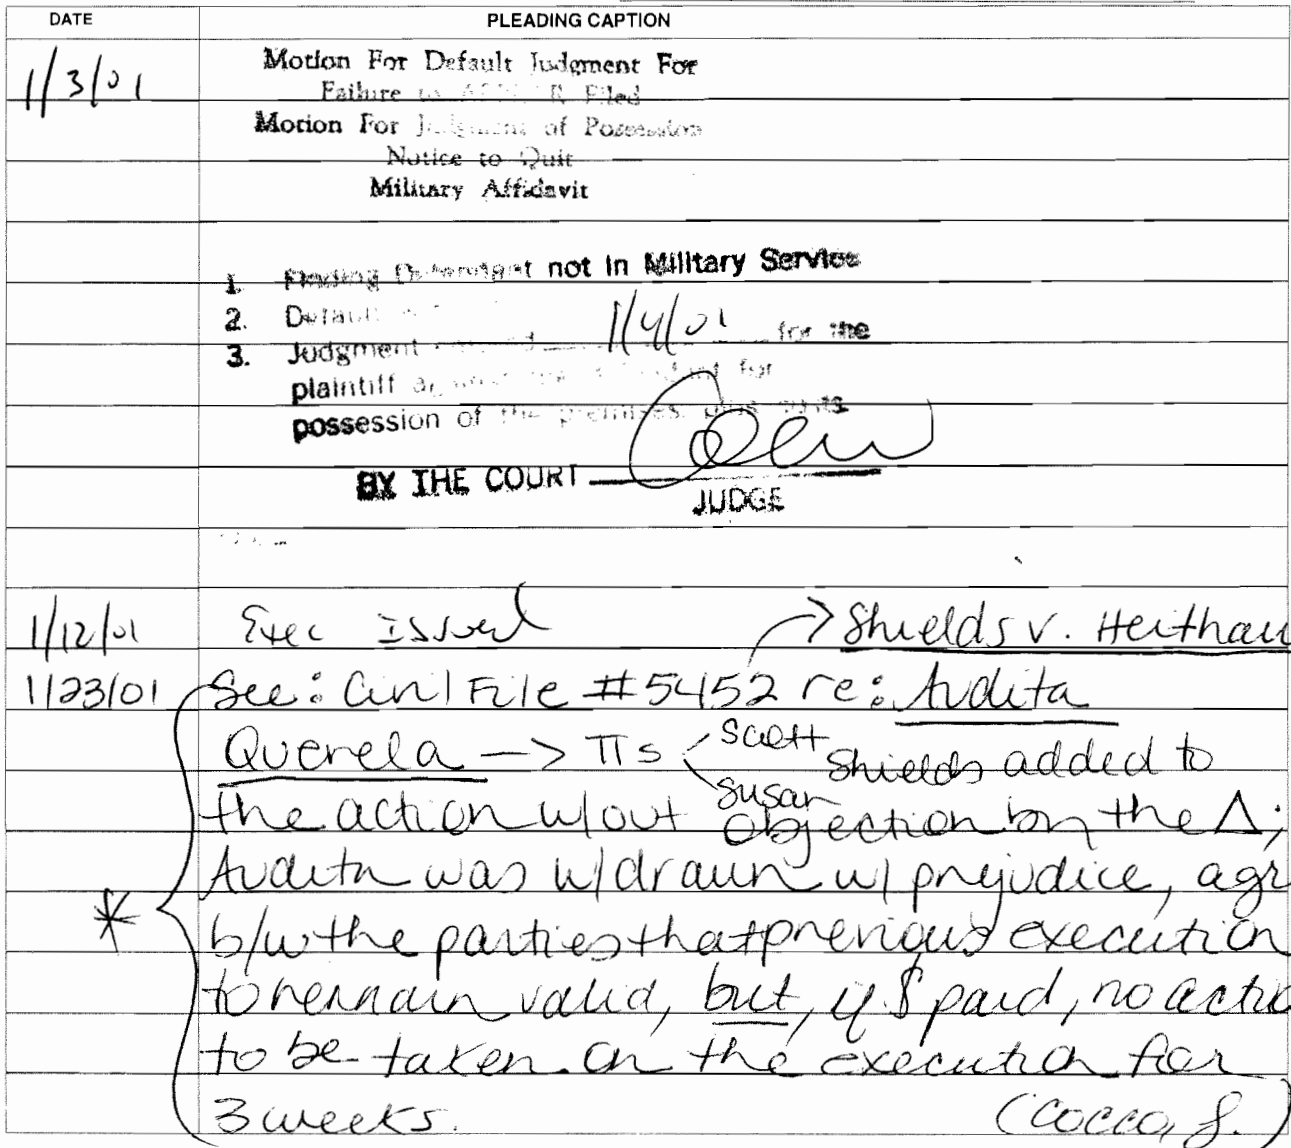 DATE PLEADING CAPTION
1/3/01 Motion For Default Judgment For
Failure to Filed
Motion For Judgment of Possession
Notice to Quit
Military Affidavit
1. Finding Defendant not in Military Service
2. Default
3. Judgment 1/4/01 for the
plaintiff for
possession of the premises, plus costs
BY THE COURT
JUDGE
1/12/01 Exec Issued → Shields v. Heithau
1/23/01 See: Civil File #5452 re: Audita
Querela —> Πs Scott Shields added to
Susan
the action w/out objection by the Δ;
Audita was w/drawn w/ prejudice, agr
* b/w the parties that previous execution
to remain valid, but, if $ paid, no actio
to be taken on the execution for
3 weeks. (Cocco, J.)